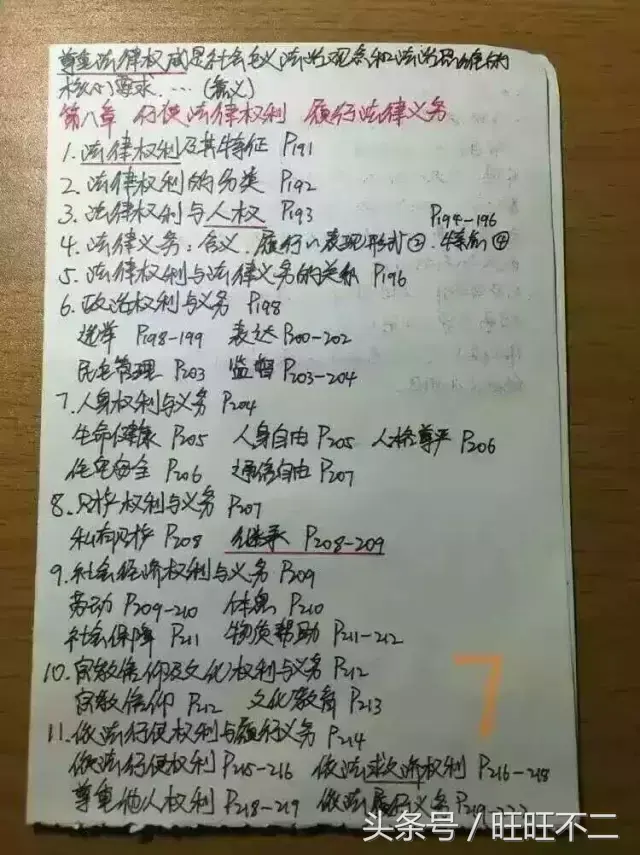 尊重法律权威是社会主义法治观念和法治思维的
核心要求.…(含义)
第八章 行使法律权利 履行法律义务
1.法律权利及其特征 P191
2.法律权利的分类 P192
3.法律权利与人权 P193 P194-196
4.法律义务:含义.履行的表现形式②.特点④
5.法律权利与法律义务的关系 P196
6.政治权利与义务 P198
选举 P198-199 表达 P200-202
民主管理 P203 监督 P203-204
7.人身权利与义务 P204
生命健康 P205 人身自由 P205 人格尊严 P206
住宅安全 P206 通信自由 P207
8.财产权利与义务 P207
私有财产 P208 继承 P208-209
9.社会经济权利与义务 P209
劳动 P209-210 休息 P210
社会保障 P211 物质帮助 P211-212
10.宗教信仰及文化权利与义务 P212
宗教信仰 P212 文化教育 P213
11.依法行使权利与履行义务 P214
依法行使权利 P215-216 依法求济权利 P216-218
尊重他人权利 P218-219 依法履行义务 P219-222
7
头条号/旺旺不二